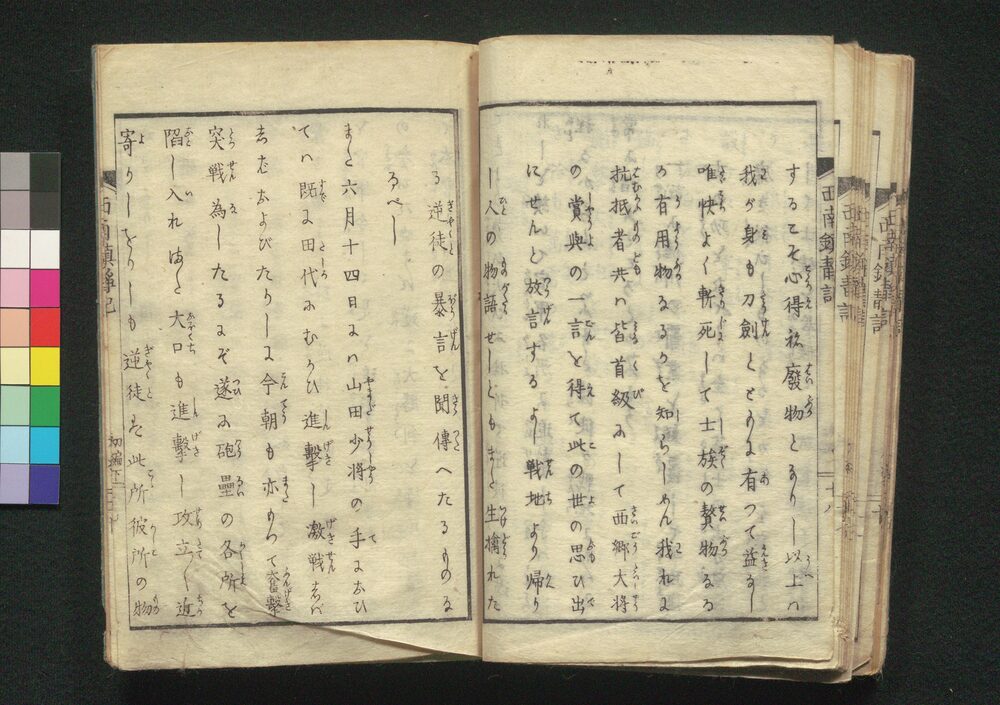 するこそ心得ね廢物となりし以上ハ
我が身も刀劍とともに有つて益なし
唯快よく斬死して士族の贅物なる
か有用物なるかを知らしめん我れに
抗抵者共ハ皆首級にして西郷大将
の賞典の一言を得て此の世の思ひ出
にせんと放言するよし戦地より帰り
し人の物語せしどもまた生擒れた
る逆徒の暴言を聞傳へたるものな
るべし
また六月十四日にハ山田少将の手におひ
てハ既に田代にむかひ進撃し激戦しば
しばおよびたりしに今朝も亦もつて奮撃
突戦為したるにぞ遂に砲壘の各所を
陥し入れはた大口も進撃し攻立て近
寄りしをりしも逆徒は此所彼所の物
西南鎮静記
初編下